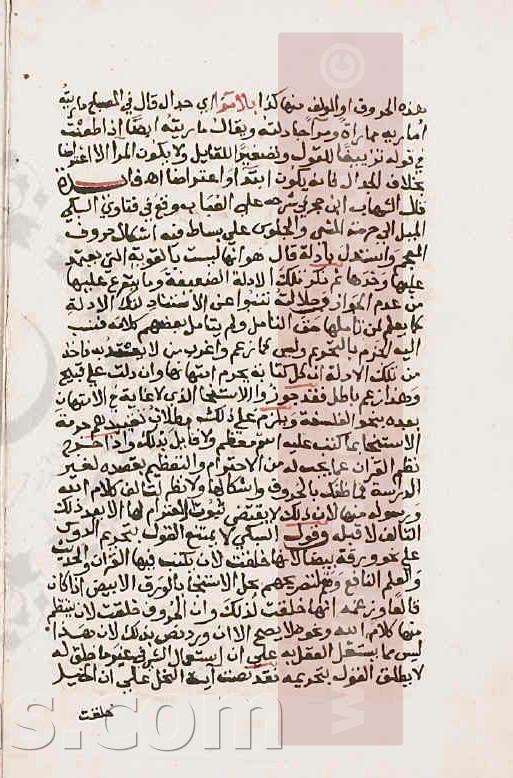 هذه الحروف او المولف منها كذا بلا مراى جدال قال فى المصباح ماريته
اماريه مماراة ومراء جادلته ويقال ماريته ايضا اذا طعنت
فى قوله تزييفا للقول وتصغيرا للقايل ولا يكون المرا الا اعتراضا
بخلاف الجدال فانه يكون ابتدا واعتراضا اه فايدة
قال الشهاب ابن حجر فى شرحه على العباب وقع فى فتاوى السبكى
الميل الى حرمة المشى والجلوس على بساط فيه اشكال حروف
المعجم واستدل بادلة قال هو انها ليست بالقوية التى يعتمد
عليها وحدها ثم ذكر تلك الادلة الضعيفة وما يتفرع عليها
من عدم الجواز وجلالته تنبوا عن الاستناد لتلك الادلة
كما يعلم من تاملها حق التامل ولم يتامل بعضهم كلامه فنسب
اليه الجزم بالتحريم وليس كما زعم واغرب من لا يعتد به فاخذ
من تلك الادلة ان كل كتابه يحرم امتهانها وان دلت على قبيح
وهذا زعم باطل فقد جوزوا الاستنجا الذى لا غاية فى الامتهان
بعده بنحو الفلسفة ويلزم على ذلك بطلان تقييدهم حرمة
الاستنجا بما كتب عليه اسم معظم ولا قايل بذلك واذا خرج
نظم القران عما يجب له من الاحترام والتعظيم بقصده لغير
الدراسة فما ظنك بالحروف واشكالها ولا نظر لتالف كلام الله
ورسوله منها لان ذلك لا يقتضى ثبوت الاحترام لها الا بعد ذلك
التالف لا قبله وقول السبكى لا يمتنع القول بتحريم الدوس
على نحو ورقة بيضا لانها خلقت لان يكتب فيها القران والحديث
والعلم النافع تصريحهم بحل الاستنجا بالورق الابيض اذا كان
قالعا وزعمه انها خلقت لذلك وان الحروف خلقت لان ينتظم
منها كلام الله ونحوه لا يصح الا ان ورد نص بذلك لان هذا
ليس مما يستقل العقل به على ان استعمال الشى فى غير ما خلق له
لا يطلق القول بتحريمه فقد نصت اية النحل على ان الخيل
خلقت